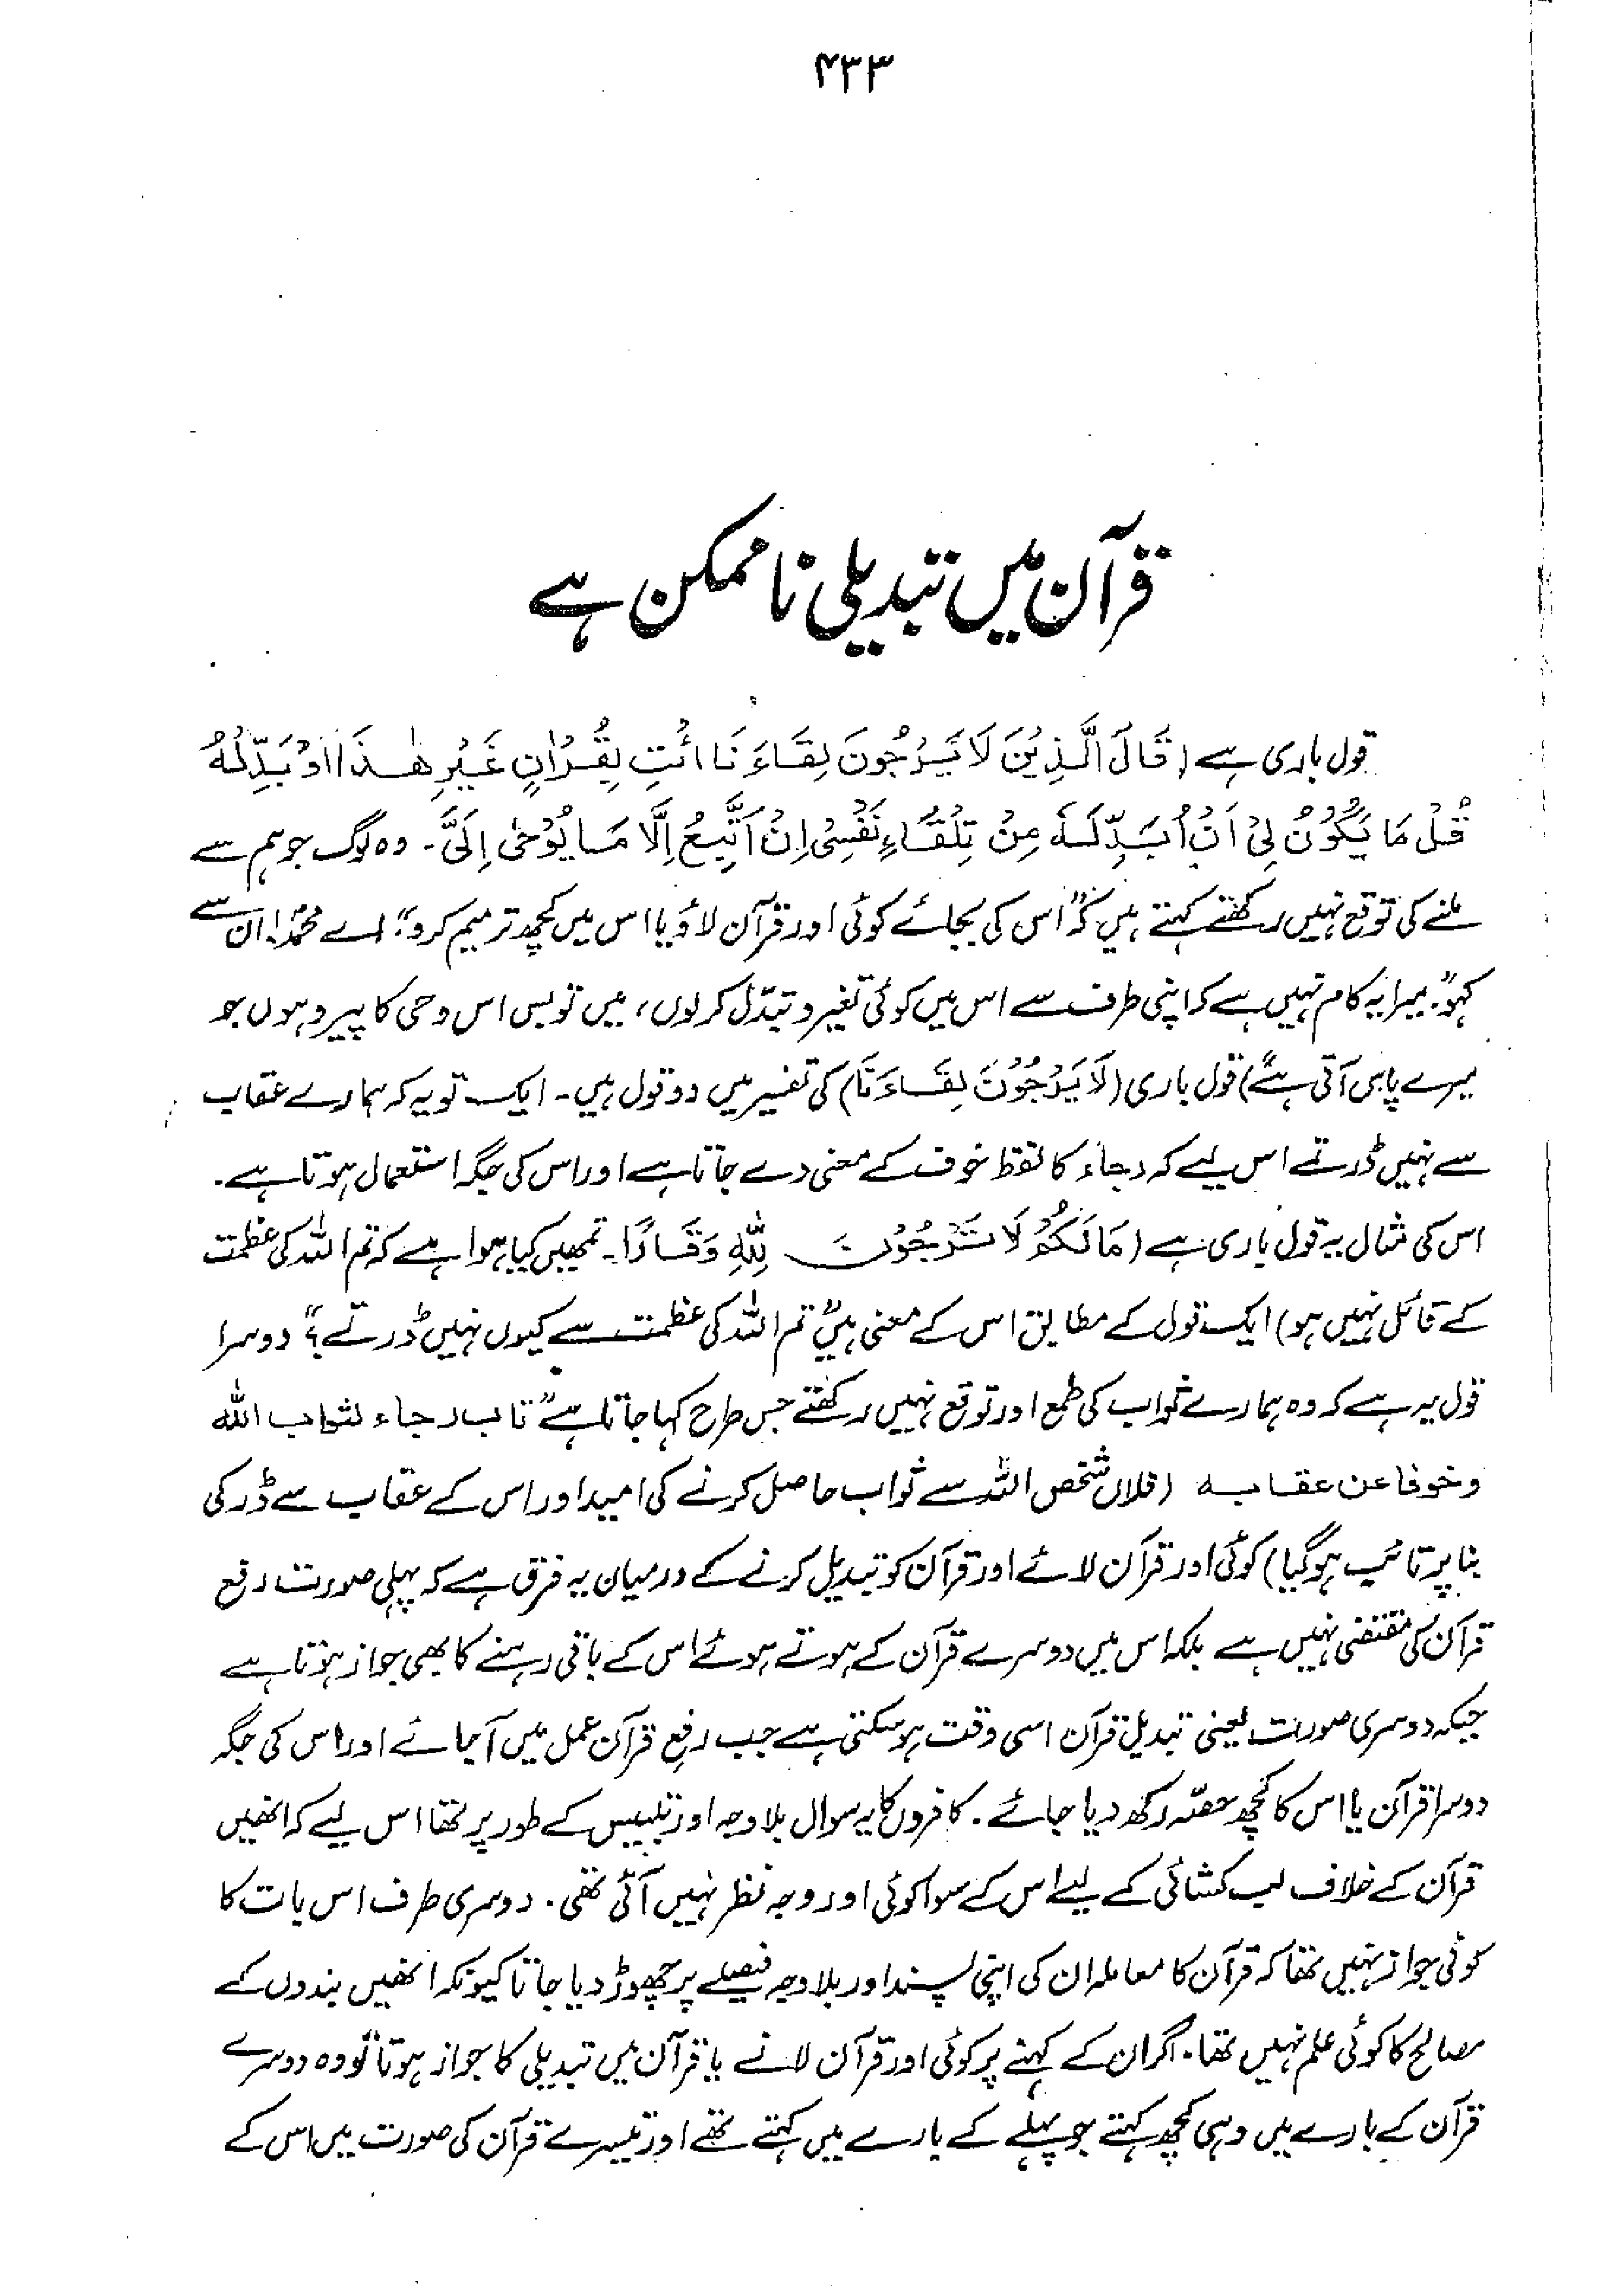 ۴۳۳
قرآن میں تبدیلی ناممکن ہے
قول باری ہے (قَالَ الَّذِيْنَ لَا يَرْجُوْنَ لِقَاءَنَا ائْتِ بِقُرْاٰنٍ غَيْرِ هٰذَا اَوْ بَدِّلْهُ
قُلْ مَا يَكُوْنُ لِيْ اَنْ اُبَدِّلَهٗ مِنْ تِلْقَاءِ نَفْسِيْ اِنْ اَتَّبِعُ اِلَّا مَا يُوْحٰى اِلَيَّ۔ وہ لوگ جو ہم سے
ملنے کی توقع نہیں رکھتے کہتے ہیں کہ "اس کی بجائے کوئی اور قرآن لاؤ یا اس میں کچھ ترمیم کرو" اے محمدؐ! ان سے
کہو۔ "میرا یہ کام نہیں ہے کہ اپنی طرف سے اس میں کوئی تغیر و تبدل کر لوں، میں تو بس اس وحی کا پیرو ہوں جو
میرے پاس آتی ہے") قول باری (لَا يَرْجُوْنَ لِقَاءَنَا) کی تفسیر میں دو قول ہیں۔ ایک تو یہ کہ ہمارے عقاب
سے نہیں ڈرتے اس لیے کہ رجاء کا لفظ خوف کے معنی دے جاتا ہے اور اس کی جگہ استعمال ہوتا ہے۔
اس کی مثال یہ قول باری ہے (مَا لَكُمْ لَا تَرْجُوْنَ لِلّٰهِ وَقَارًا۔ تمھیں کیا ہوا ہے کہ تم اللہ کی عظمت
کے قائل نہیں ہو) ایک قول کے مطابق اس کے معنی ہیں "تم اللہ کی عظمت سے کیوں نہیں ڈرتے؟" دوسرا
قول یہ ہے کہ وہ ہمارے ثواب کی طمع اور توقع نہیں رکھتے جس طرح کہا جاتا ہے "تاب رجاء لثواب الله
وخوفا عن عقابه (فلاں شخص اللہ سے ثواب حاصل کرنے کی امید اور اس کے عقاب سے ڈر کی
بنا پر تائب ہو گیا) کوئی اور قرآن لائے اور قرآن کو تبدیل کرنے کے درمیان یہ فرق ہے کہ پہلی صورت رفع
قرآن کی مقتضی نہیں ہے بلکہ اس میں دوسرے قرآن کے ہوتے ہوئے اس کے باقی رہنے کا بھی جواز ہوتا ہے
جبکہ دوسری صورت یعنی تبدیل قرآن اسی وقت ہو سکتی ہے جب رفعِ قرآن عمل میں آجائے اور اس کی جگہ
دوسرا قرآن یا اس کا کچھ حصّہ رکھ دیا جائے۔ کافروں کا یہ سوال بلاوجہ اور تلبیس کے طور پر تھا اس لیے کہ انھیں
قرآن کے خلاف لب کشائی کے لیے اس کے سوا کوئی اور وجہ نظر نہیں آئی تھی۔ دوسری طرف اس بات کا
کوئی جواز نہیں تھا کہ قرآن کا معاملہ ان کی اپنی پسند اور بلاوجہ فیصلے پر چھوڑ دیا جاتا کیونکہ انھیں بندوں کے
مصالح کا کوئی علم نہیں تھا۔ اگر ان کے کہنے پر کوئی اور قرآن لانے یا قرآن میں تبدیلی کا جواز ہوتا تو وہ دوسرے
قرآن کے بارے میں وہی کچھ کہتے جو پہلے کے بارے میں کہتے تھے اور تیسرے قرآن کی صورت میں اس کے